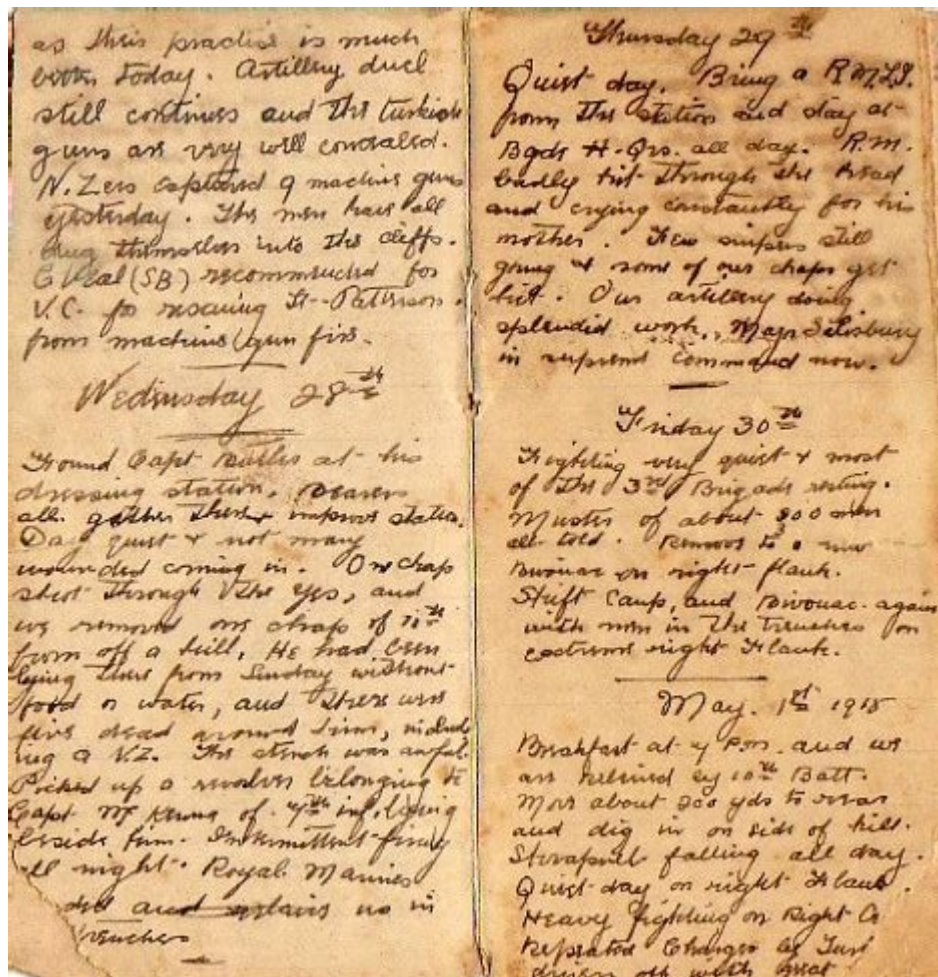 as their practise is much
better today. Artillery duel
still continues and the turkish
guns are very well concealed.
N. Zers captured 9 machine guns
yesterday. The men have all
dug themselves into the cliffs.
(SB) recommended for
V.C. for rescuing Lt. Patterson.
from machine gun fire.
Wednesday 28th
Found Capt Butler at his
dressing station. Bearers
all gather there & improve station.
Day quiet & not many
wounded coming in. One chap
shot through the eyes, and
we removed one chap of 11th
from off a hill, He had been
lying there from Sunday without
food or water, and there were
five dead around him, includ
ing a N.Z. The stench was awful.
Picked up a revolver belonging to
Capt of inf. lying
beside him. Intermittent firing
all night. Royal Marines
and us in
trenches
Thursday 29th
Quiet day. Bring a R.M.L.I.
from the station and stay at
Bgde H. Qrs. all day. R.M.
badly hit through the head
and crying constantly for his
mother. Few snipers still
going & some of our chaps get
hit. Our artillery doing
splendid work. Major Salisbury
in supreme command now.
Friday 30th
Fighting very quiet & most
of the 3rd Brigade resting.
Muster of about 800 men
all told. Remove to a new
Bivouac on right flank.
Shift Camp, and Bivouac again
with men in the trenches on
extreme right Flank.
May. 1st 1915
Breakfast at 4 and we
are relieved by 10th Batt.
Move about 200 yds to rear
and dig in on side of hill.
Shrapnel falling all day.
Quiet day on right Flank.
Heavy fighting on Right
Repeated Charges by Turk
driven off with great